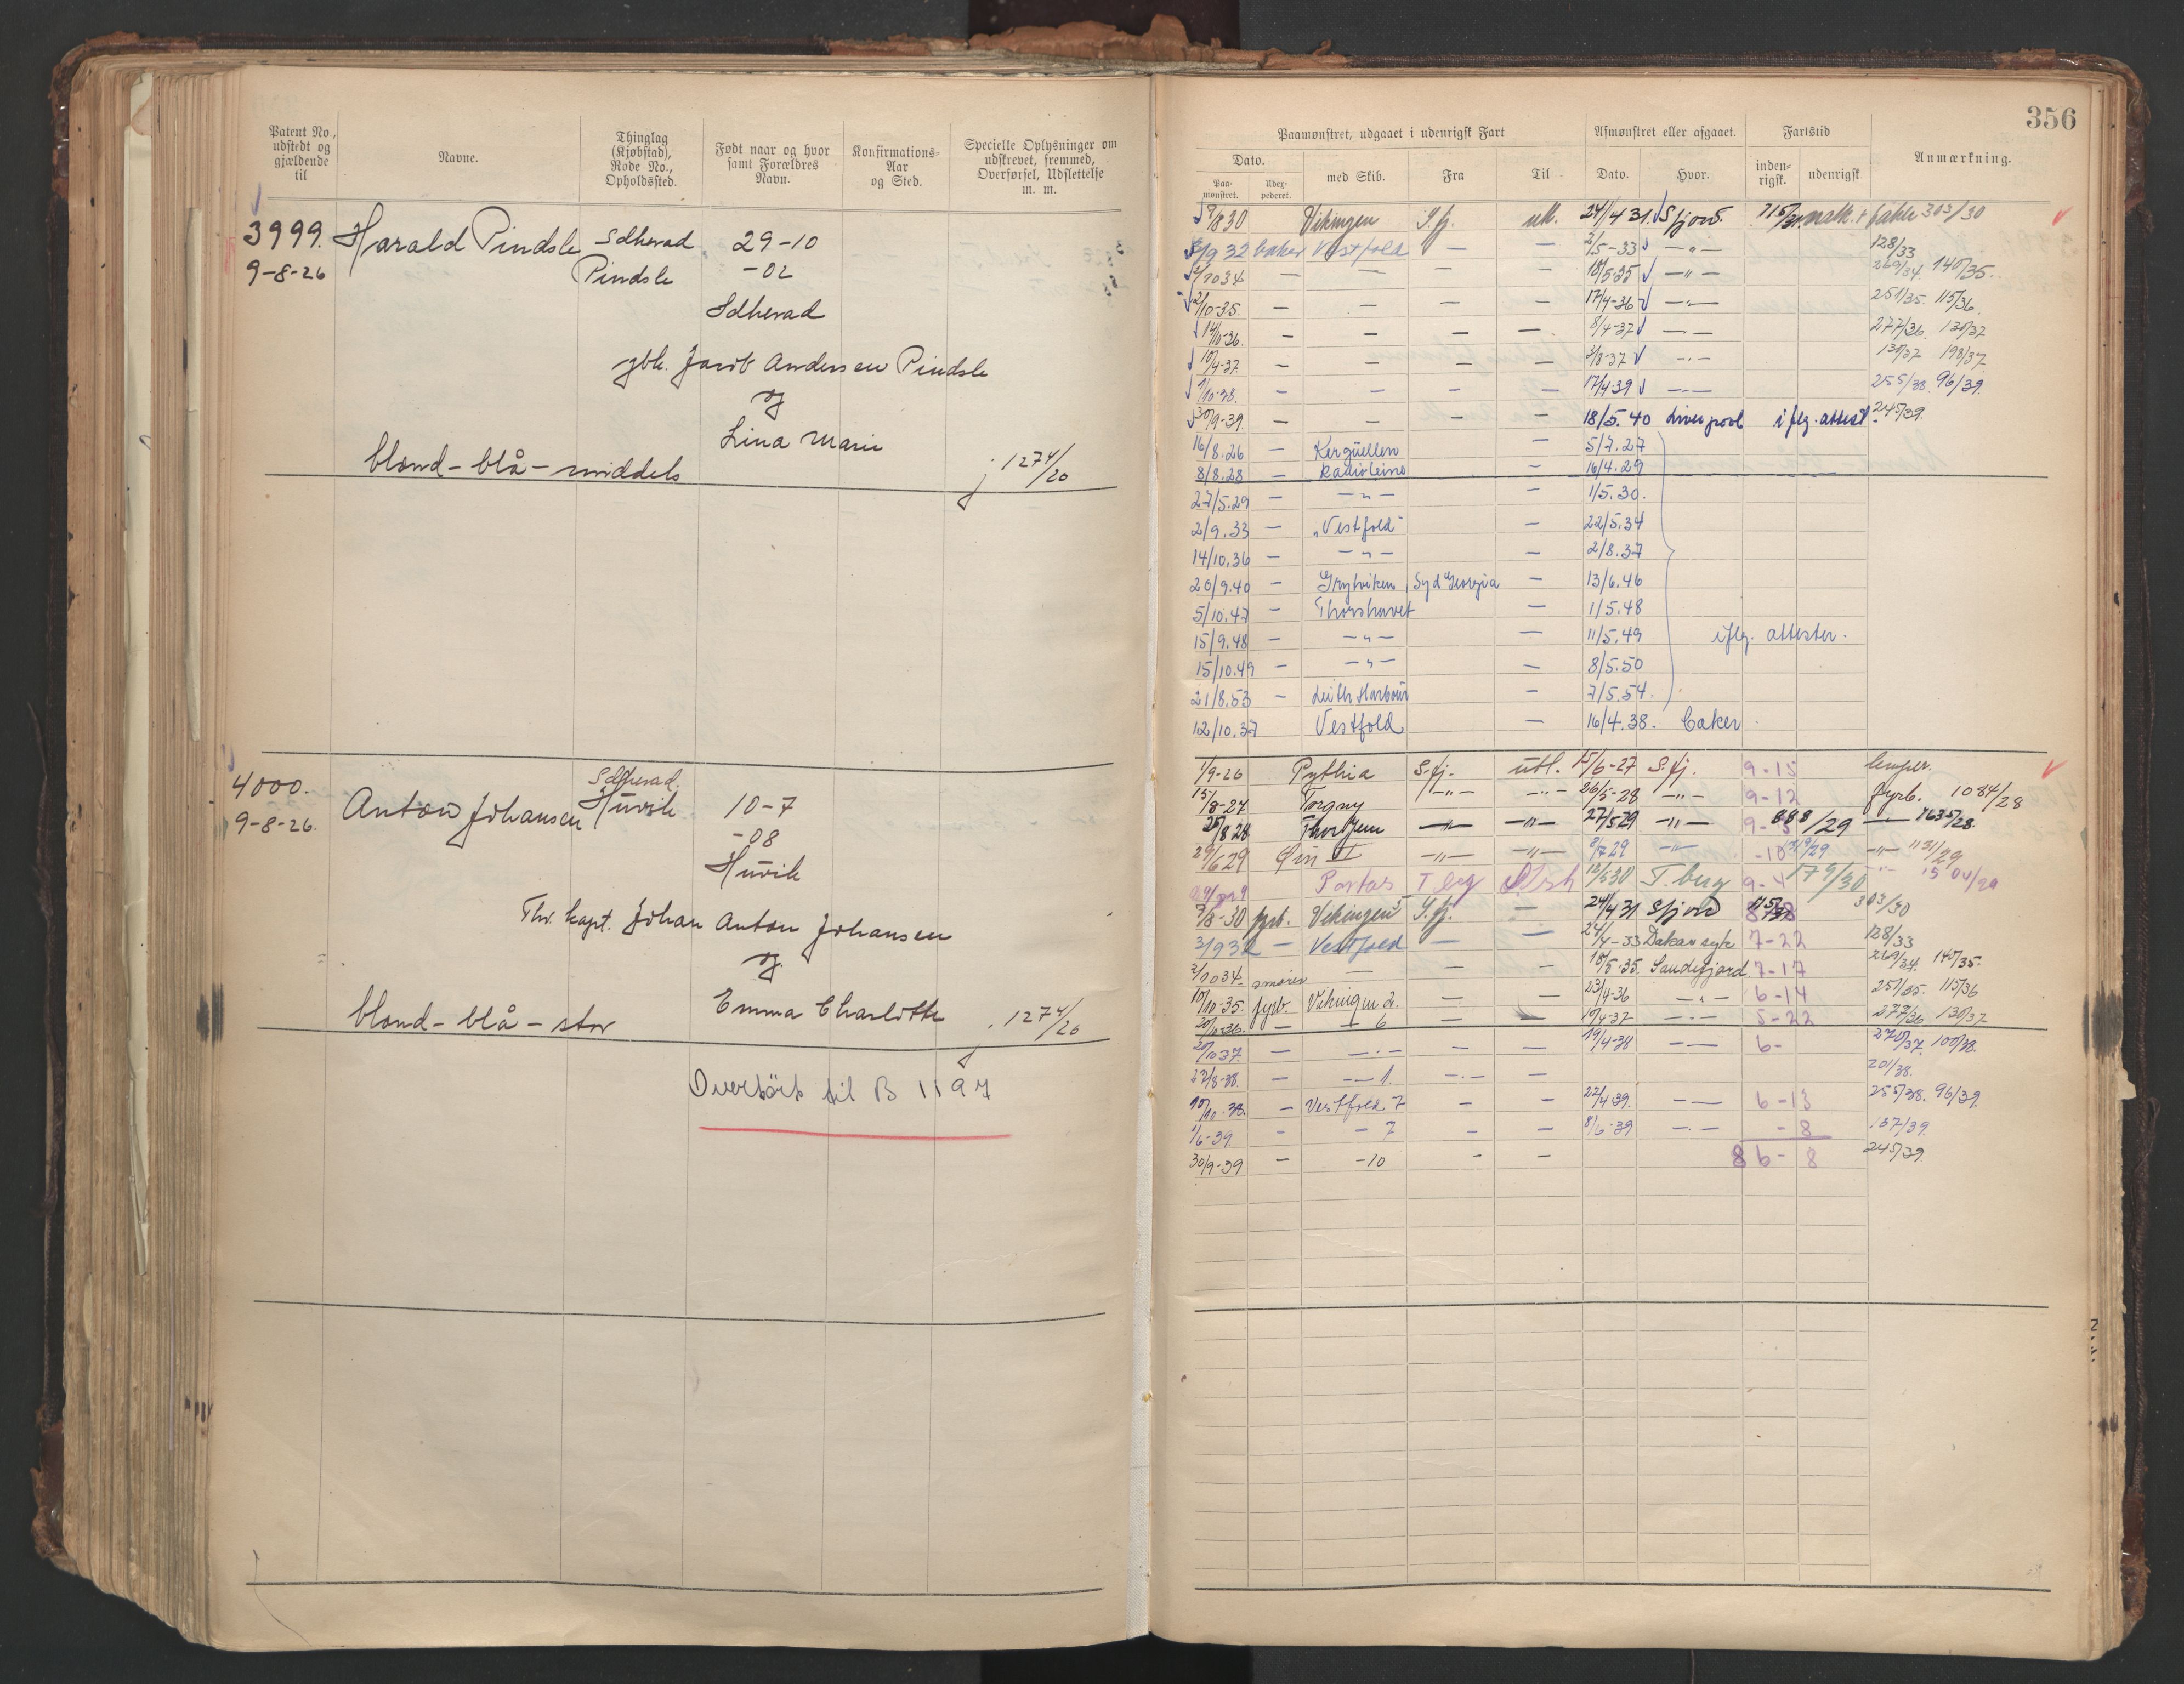 Patent No., udstedt og gjældende til
Navne.
Thinglag (Kjøbstad), Rode No., Opholdssted.
Født naar og hvor samt Forældres Navn.
Konfirmations-Aar og Sted.
Specielle Oplysninger om udskrevet, fremmed, Overførsel, Udslettelse m. m.
3999. Harald Pindsle Sdherad 29-10
9-8-26 Pindsle -02
Sdherad
gbr. Jacob Andersen Pindsle
og
Lina Marie
blond - blå - middels j 1274/20
4000. Sdherad.
Anton Johansen Huvik 10-7
9-8-26. -08
Huvik
Thv. kapt. Johan Anton Johansen
og
Emma Charlotte
blond - blå - stor j. 1274/20
Overført til B 1197
356
Paamønstret, udgaaet i udenrigsk Fart
Afmønstret eller afgaaet.
Fartstid
Anmærkning.
Dato.
Paa-mønstret.
Udex-pederet.
med Skib.
Fra
Til
Dato.
Hvor.
inden-rigsk.
udenrigsk
9/8 30 Vikingen S.fj. utl. 24/4 31. Sfjord. 115/31. 303/30
5/9 32 baker Vestfold — — 2/5-33 —"— 128/33
2/10 34 — — — — 18/5-35 —"— 269/34. 140/35.
2/10-35. — — — — 17/4-36 —"— 251/35. 115/36.
14/10-36. — — — — 8/4-37 —"— 277/36. 130/37
10/4-37 — — — — 2/8-37 —"— 130/37 198/37
1/10-38. — — — — 17/4 39 —"— 255/38. 96/39.
30/9-39. — — — — 18/5.40 Liverpool iflg. attest. 245/39.
16/8.26 — Kergüellen — 5/7.27
8/8.28 — Radioleine — 16/4.29
27/5.29 — —"— — 1/5.30.
2/9.33 — "Vestfold" — 22/5.34
14/10.36 — —"— — 2/8.37
20/9.40 — Grytviken, Syd Georgia — 13/6.46
5/10.47 — Thorshavet — 1/5.48
15/9.48 — —"— — 11/5.49 iflg. attester.
15/10.49 — —"— — 8/5.50
21/8.53 — Leith Harbour — 7/5.54.
12/10.37 Vestfold — 16/4.38. Baker
1/9-26 Pythia S.fj. utl. 15/6-27 S.fj. 9-15 lemper.
15/8-27 Torgny —"— —"— 26/5-28 —"— 9-12 fyrb. 1084/28
25/8 28 Thorgjem —"— —"— 27/5 29 —"— 888/29 — 1635/28.
29/6 29 Ørn II —"— —"— 9/7 29 —"— -10 —"— 1131/29
Portas T.berg 12/5 30 T.berg 9-4 179/30 1504/29
7/8-30 fyrb. Vikingen 5 S.fj. — 24/4 31 Sfjord 115/31 303/30
3/9 32 — Vestfold — — 24/4-33 Dakar syk 7-22 128/33
2/10 34. smører — — — 18/5-35. Sandefjord 7-17 269/34. 140/35.
10/10-35. fyrb. Vikingen 2. — — 23/4-36 —"— 6-14 251/35. 115/36
20/10-36. — — 6 — — 10/4-37 —"— 5-22 277/36 130/37
20/10 37. — —"— — — 19/4-38 —"— 6- 270/37. 100/38.
27/8-38. — —"— 1. —"— — 201/38.
10/10.38. — Vestfold 7 — — 22/4 39. —"— 6-13 255/38. 96/39.
1/6-39. — — 7 — — 8/6-39 —"— -8 137/39.
30/9-39 — -10 — — 86-8 245/39